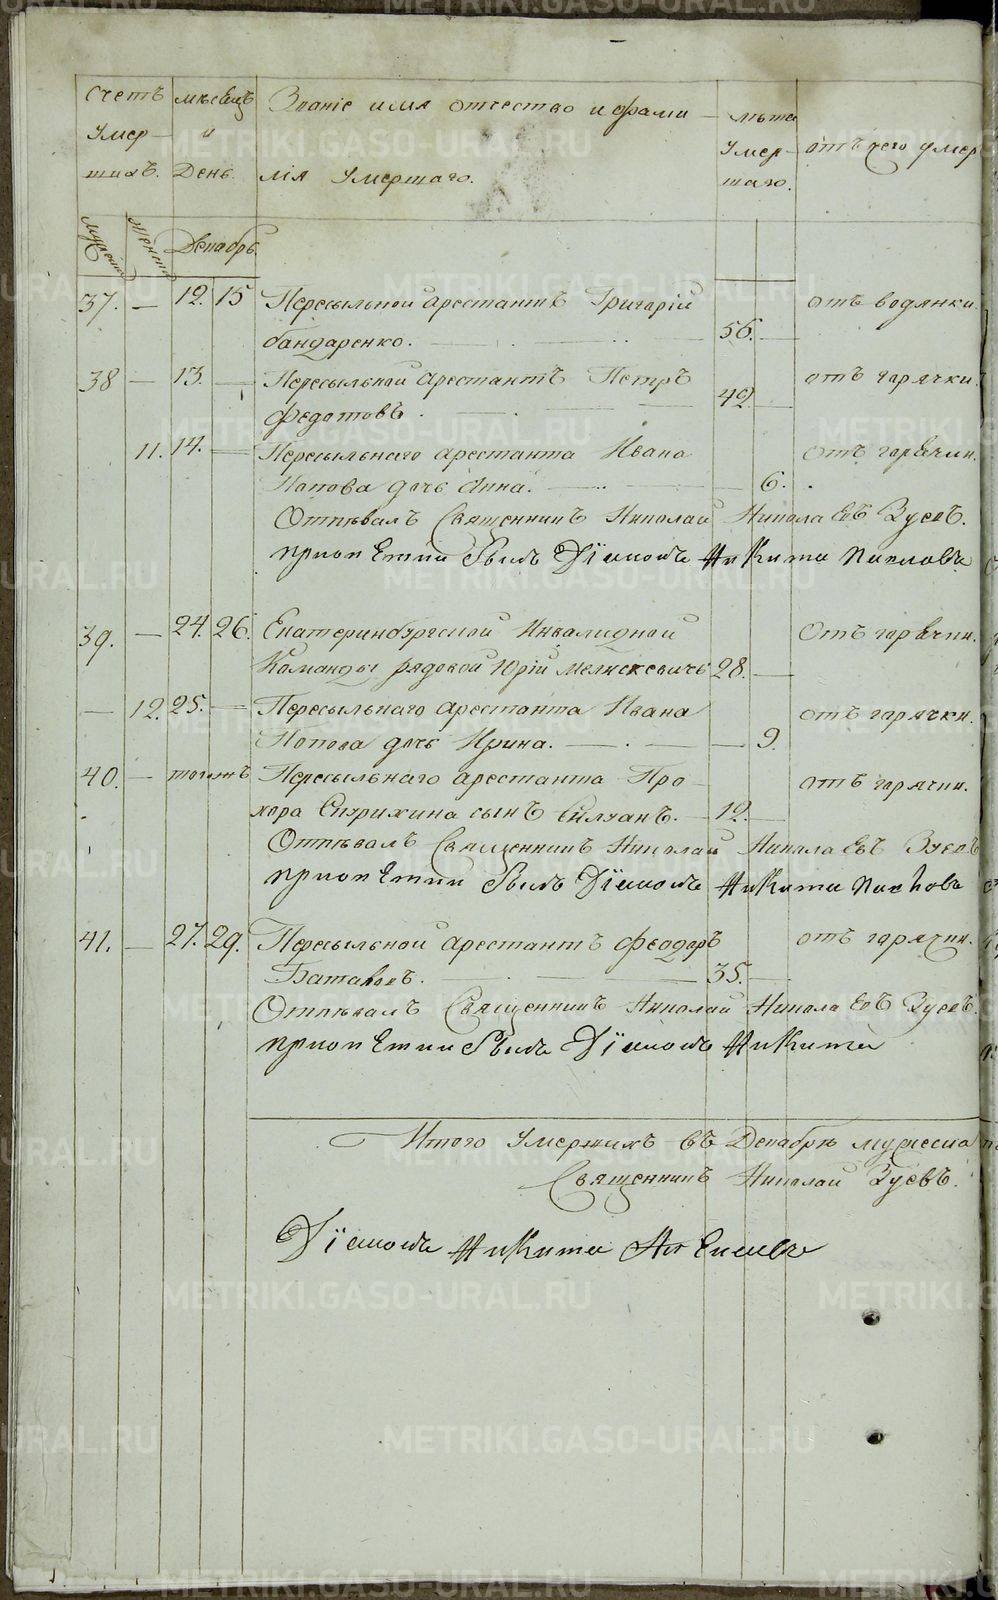 Счетъ мѣсяцъ Званіе имя отчество и фами- лѣта
умер- и умер- отъ чего умер
шихъ. День. лія умершаго. шаго.
мужеска женска Декабрь.
37. — 12. 15 Пересыльной арестантъ Григорій отъ водянки.
бандаренко. — 56. —
38 — 13. — Пересыльной арестантъ Петръ отъ горячки.
Федотовъ. — 42. —
11. 14. — Пересыльнаго арестанта Ивана отъ горячки.
Попова дочь Анна. — 6.
Отпѣвалъ Священникъ Николай Николаевъ Зуевъ.
при опетии былъ Діаконъ Никита
39. — 24. 26. Екатеринбургской Инвалидной отъ горячки.
Команды рядовой Юрій 28. —
— 12. 25. — Пересыльнаго арестанта Ивана отъ горячки.
Попова дочь Ирина. — 9.
40. — тогожъ Пересыльнаго арестанта Про- отъ горячки.
хора сынъ — 12. —
Отпѣвалъ Священникъ Николай Николаевъ Зуевъ
при опетии былъ Діаконъ Никита
41. — 27. 29. Пересыльной арестантъ Феодоръ отъ горячки.
35. —
Отпѣвалъ Священникъ Николай Николаевъ Зуевъ.
при опетии былъ Діаконъ Никита
Итого умершихъ въ Декабрѣ мужеска
Священникъ Николай Зуевъ.
Діаконъ Никита
METRIKI.GASO-URAL.RU